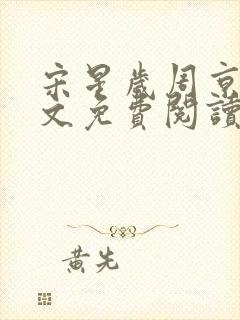 宋星歲周京
文免費閱讀
黃先